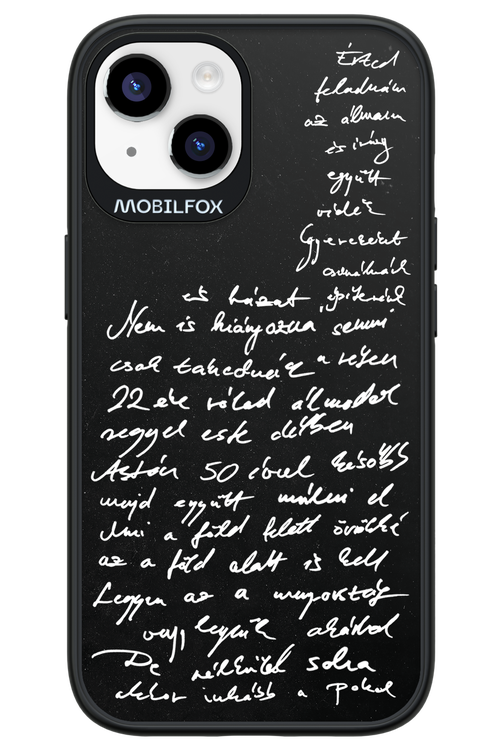 MOBILFOX
Érted
feladnám
az álmaim
és irány
együtt
vidék
Gyerekeket
csinálnánk
és házat építenénk
Nem is hiányozna semmi
csak takednánk a réten
22 éve rólad álmodok
reggel este délben
Aztán 50 évvel később
majd együtt múlni el
Ami a föld felett örökké
az a föld alatt is kell
Legyen az a mennyország
vagy legyünk akárhol
De nélküled soha
akkor inkább a Pokol